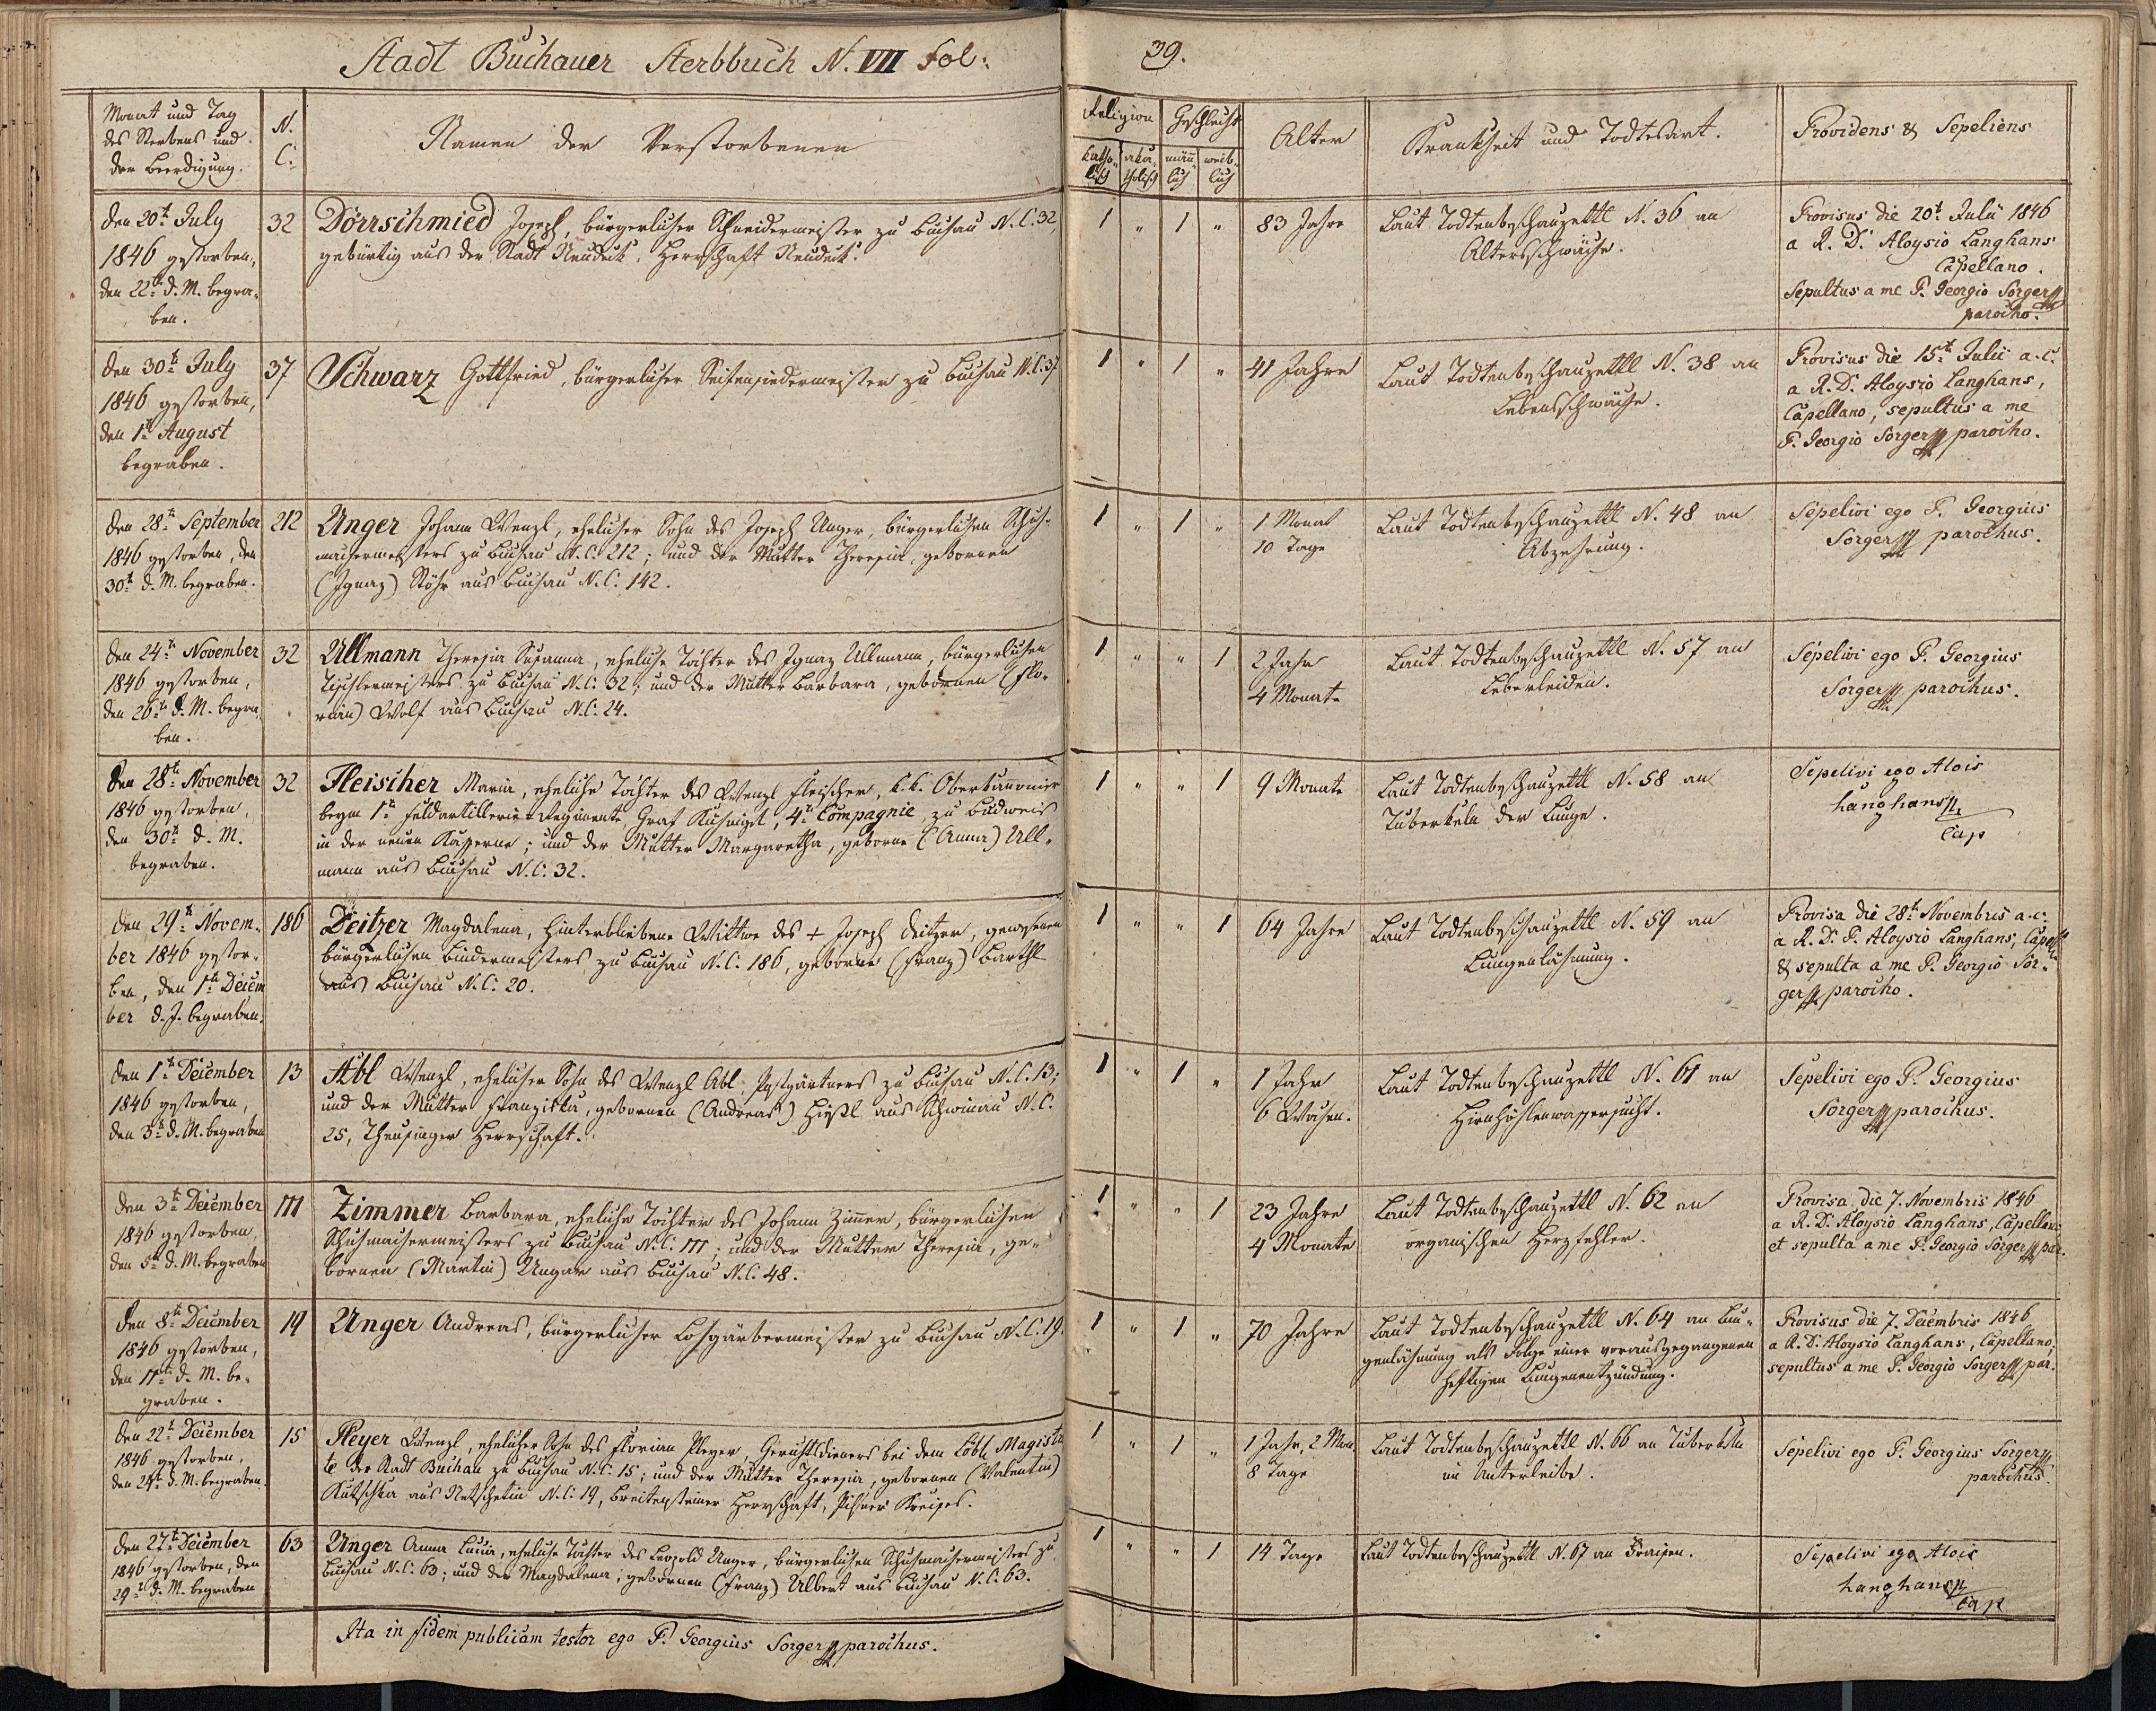 Stadt Buchauer Sterbbuch N. VII Fol:
39.
Monat und Tag
des Sterbens und
der Beerdigung.
N.
C.
Namen der Verstorbenen
Religion
Geschlecht
katho-
lisch
aka-
tholisch
män-
lich
weib-
lich
Alter
Krankheit und Todtesart.
Providens & Sepeliens
den 20t. July
1846 gestorben,
den 22t. d. M. begra-
ben.
32
Dörrschmied Joseph, bürgerlicher Schneidermeister zu Buchau N.C. 32,
gebürtig aus der Stadt Neudeck, Herrschaft Neudeck.
1 " 1 "
83 Jahre
Laut Todtenbeschauzettl N. 36 an
Altersschwäche.
Provisus die 20t. Julii 1846
a R. D. Aloysio Langhans
Capellano.
Sepultus a me P. Georgio Sorger
parocho.
den 30t. July
1846 gestorben,
den 1t. August
begraben.
37
Schwarz Gottfried, bürgerlicher Seifensiedermeister zu Buchau N.C. 37
1 " 1 "
41 Jahre
Laut Todtenbeschauzettl N. 38 an
Lebensschwäche.
Provisus die 15t. Julii a. c.
a R. D. Aloysio Langhans,
Capellano, sepultus a me
P. Georgio Sorger parocho.
den 28t. September
1846 gestorben, den
30t. d. M. begraben.
212
Unger Johann Wenzl, ehelicher Sohn des Joseph Unger, bürgerlichen Schuh-
machermeisters zu Buchau N.C. 212; und der Mutter Theresia, gebornen
(Ignaz) Stöhr aus Buchau N.C. 142.
1 " 1 "
1 Monat
10 Tage
Laut Todtenbeschauzettl N. 48 an
Abzehrung.
Sepelivi ego P. Georgius
Sorger parochus.
den 24t. November
1846 gestorben,
den 26t. d. M. begra-
ben.
32
Ullmann Theresia Susanna, eheliche Tochter des Ignaz Ullmann, bürgerlichen
Tischlermeisters zu Buchau N.C. 32; und der Mutter Barbara, gebornen (Flo-
rian) Wolf aus Buchau N.C. 24.
1 " " 1
2 Jahr
4 Monate
Laut Todtenbeschauzettl N. 57 an
Leberleiden.
Sepelivi ego P. Georgius
Sorger parochus.
den 28t. November
1846 gestorben,
den 30t. d. M.
begraben.
32
Fleischer Maria, eheliche Tochter des Wenzl Fleischer, k.k. Oberkannonier
beym 1t. Feldartillerie-Regimente Graf 4t. Compagnie, zu Budweis
in der neuen Kaserne; und der Mutter Margaretha, geborne (Anna) Ull-
mann aus Buchau N.C. 32.
1 " " 1
9 Monate
Laut Todtenbeschauzettl N. 58 an
Tuberkeln der Lunge.
Sepelivi ego Alois
Langhans
Cap
den 29t. Novem-
ber 1846 gestor-
ben, den 1t. Decem
ber d. J. begraben.
186
Deitzer Magdalena, hinterbliebene Wittwe des + Joseph Deitzer, gewesenen
bürgerlichen Bindermeisters zu Buchau N.C. 186, geborne (Franz) Barthl
aus Buchau N.C. 20.
1 " " 1
64 Jahre
Laut Todtenbeschauzettl N. 59 an
Lungenlähmung.
Provisa die 28t. Novembris a. c.
a R. D. P. Aloysio Langhans, Capell
& sepulta a me P. Georgio Sor-
ger parocho.
den 1t. December
1846 gestorben,
den 3t. d. M. begraben
13
Abl Wenzl, ehelicher Sohn des Wenzl Abl Postgärtners zu Buchau N.C. 13;
und der Mutter Franziska, gebornen (Andreas) Hießl aus Schwinau N.C.
25, Theusinger Herrschaft.
1 " 1 "
1 Jahr
6 Wochen.
Laut Todtenbeschauzettl N. 61 an
Hirnhöhlenwassersucht.
Sepelivi ego P. Georgius
Sorger parochus.
den 3t. December
1846 gestorben,
den 5t. d. M. begraben
111
Zimmer Barbara, eheliche Tochter des Johann Zimmer, bürgerlichen
Schuhmachermeisters zu Buchau N.C. 111; und der Mutter Theresia, ge-
bornen (Martin) Ungar aus Buchau N.C. 48.
1 " " 1
23 Jahre
4 Monate
Laut Todtenbeschauzettl N. 62 an
organischen Herzfehler.
Provisa die 7. Novembris 1846
a R. D. Aloysio Langhans, Capellano
et sepulta a me P. Georgio Sorger par.
den 8t. December
1846 gestorben,
den 11t. d. M. be-
graben.
19
Unger Andreas, bürgerlicher Lohgärbermeister zu Buchau N.C. 19.
1 " 1 "
70 Jahre
Laut Todtenbeschauzettl N. 64 an Lun-
genlähmung als Folge einer vorausgegangenen
heftigen Lungenentzündung.
Provisus die 7. Decembris 1846
a R. D. Aloysio Langhans, Capellano,
sepultus a me P. Georgio Sorger par.
den 22t. December
1846 gestorben,
den 24t. d. M. begraben.
15
Pleyer Wenzl, ehelicher Sohn des Florian Pleyer, Gerichtsdieners bei dem Löbl. Magistra
te der Stadt Buchau zu Buchau N.C. 15; und der Mutter Theresia, gebornen (Valentin)
Kutschka aus Netschetin N.C. 19, Breitensteiner Herrschaft, Pilsner Kreises.
1 " 1 "
1 Jahr, 2 Mon.
8 Tage
Laut Todtenbeschauzettl N. 66 an Tuberkeln
im Unterleibe.
Sepelivi ego P. Georgius Sorger
parochus.
den 27t. December
1846 gestorben, den
29t. d. M. begraben
63
Unger Anna Lucia, eheliche Tochter des Leopold Unger, bürgerlichen Schuhmachermeisters zu
Buchau N.C. 63; und der Magdalena, gebornen (Franz) Albert aus Buchau N.C. 63.
1 " " 1
14 Tage
Laut Todtenbeschauzettl N. 67 an Fraisen.
Sepelivi ego Alois
Langhans
Cap
Ita in fidem publicam testor ego P. Georgius Sorger parochus.